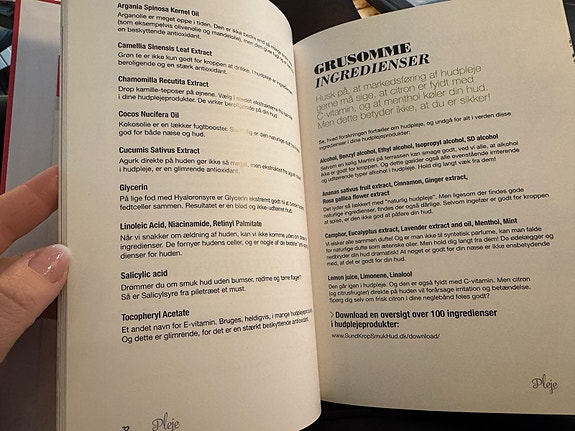 Argania Spinosa Kernel Oil
Arganolie er meget oppe i tiden. Den er ikke bedre end så mange
(som eksempelvis olivenolie og mandelolie), men den giver
en beskyttende antioxidant.
Camellia Sinensis Leaf Extract
Grøn te er ikke kun godt for kroppen at drikke. I hudpleje er
beroligende og en stærk antioxidant.
Chamomilla Recutita Extract
Drop kamille-teposer på øjnene. Vælg i stedet ekstrakterne
i dine hudplejeprodukter. De virker beroligende på din hud.
Cocos Nucifera Oil
Kokosolie er en lækker fugtbooster. den naturlige duft
god for både næse og hud.
Cucumis Sativus Extract
Agurk direkte på huden gør ikke så meget, men ekstraktet fra agurk
i hudpleje, er en glimrende antioxidant.
Glycerin
På lige fod med Hyaloronsyre er Glycerin ekstremt godt til at
fedtceller sammen. Resultatet er en blød og ikke-udtørret hud.
Linoleic Acid, Niacinamide, Retinyl Palmitate
Når vi snakker om ældning af huden, kan vi ikke komme uden om
ingredienser. De fornyer hudens celler, og er nogle af de bedste
dienser for huden.
Salicylic acid
Drømmer du om smuk hud uden bumser, rødme og tørre flager?
Så er Salicylsyre fra piletræet et must.
Tocopheryl Acetate
Et andet navn for E-vitamin. Bruges, heldigvis, i mange hudplejeprodukter
Og dette er glimrende, for det er en stærkt beskyttende antioxidant.
32 Pleje
GRUSOMME
INGREDIENSER
Husk på, at markedsføring af hudpleje
gerne må sige, at citron er fyldt med
C-vitamin, og at menthol køler din hud.
Men dette betyder ikke, at du er sikker!
Se, hvad forskningen fortæller om hudpleje, og undgå for alt i verden disse
ingredienser i dine hudplejeprodukter:
Alcohol, Benzyl alcohol, Ethyl alcohol, Isopropyl alcohol, SD alcohol
Selvom en kølig Martini på terrassen kan smage godt, ved vi alle, at alkohol
ikke er godt for kroppen. Og dette gælder også alle ovenstående irriterende
og udtørrende typer alkohol i hudpleje. Hold dig langt væk fra dem!
Ananas sativus fruit extract, Cinnamon, Ginger extract,
Rosa gallica flower extract
Det lyder så lækkert med "naturlig hudpleje". Men ligesom der findes gode
naturlige ingredienser, findes der også dårlige. Selvom ingefær er godt for kroppen
at spise, er den ikke god at påføre din hud.
Camphor, Eucalyptus extract, Lavender extract and oil, Menthol, Mint
Vi elsker alle sammen dufte! Og er man ikke til syntetisk parfume, kan man falde
for naturlige dufte som æteriske olier. Men hold dig langt fra dem! De ødelægger og
nedbryder din hud dramatisk! At noget er godt for din næse er ikke ensbetydende
med, at det er godt for din hud.
Lemon juice, Limonene, Linalool
Den går igen i hudpleje. Og den er også fyldt med C-vitamin. Men citron
(og citrusfrugter) direkte på huden vil forårsage irritation og betændelse.
Spørg dig selv om frisk citron i dine neglebånd føles godt?
> Download en oversigt over 100 ingredienser
i hudplejeprodukter:
www.SundKropSmukHud.dk/download/
Pleje